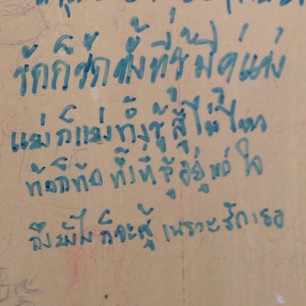 รักก็รักทั้งที่รู้มีคู่แข่ง
แข่งก็แข่งทั้งรู้สู้ไม่ไหว
ท้อก็ท้อ ทั้งที่รู้อยู่แก่ใจ
ถึงยังไงก็จะสู้ เพราะรักเธอ